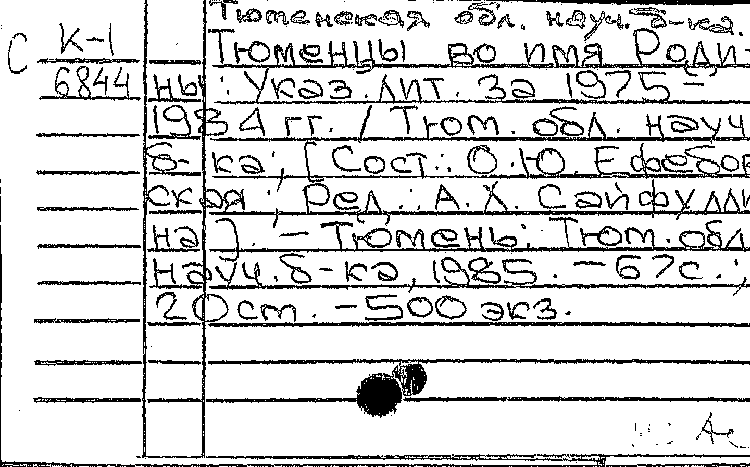 Тюменская обл. науч. б-ка.
С К-1 Тюменцы во имя Роди-
6844 ны: Указ. лит. за 1975-
1984 гг. / Тюм. обл. науч
б-ка; [Сост.: О.Ю. Ефебов
ская; Ред.: А.Х. Сайфулли
на]. - Тюмень: Тюм. обл
науч. б-ка, 1985. - 67с.;
20 ст. - 500 экз.